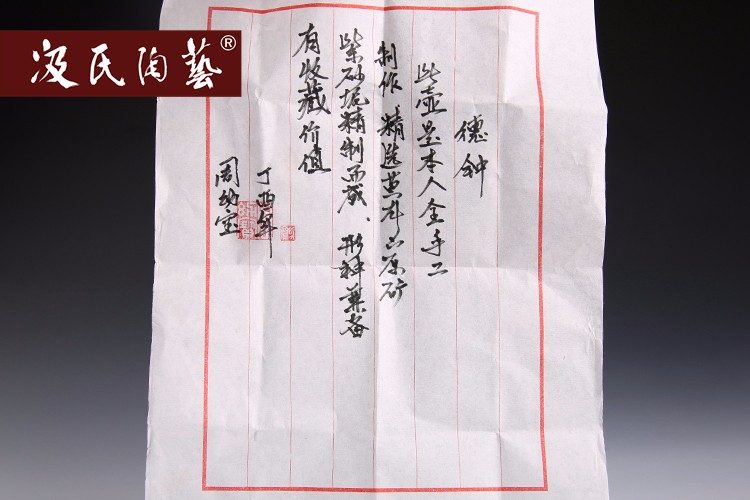 汲氏陶藝®
德钟
此壶是本人全手工
制作、精选黄龙山原矿
紫砂坭精制而成、形神兼备
有收藏价值
丁酉年
周幼宝